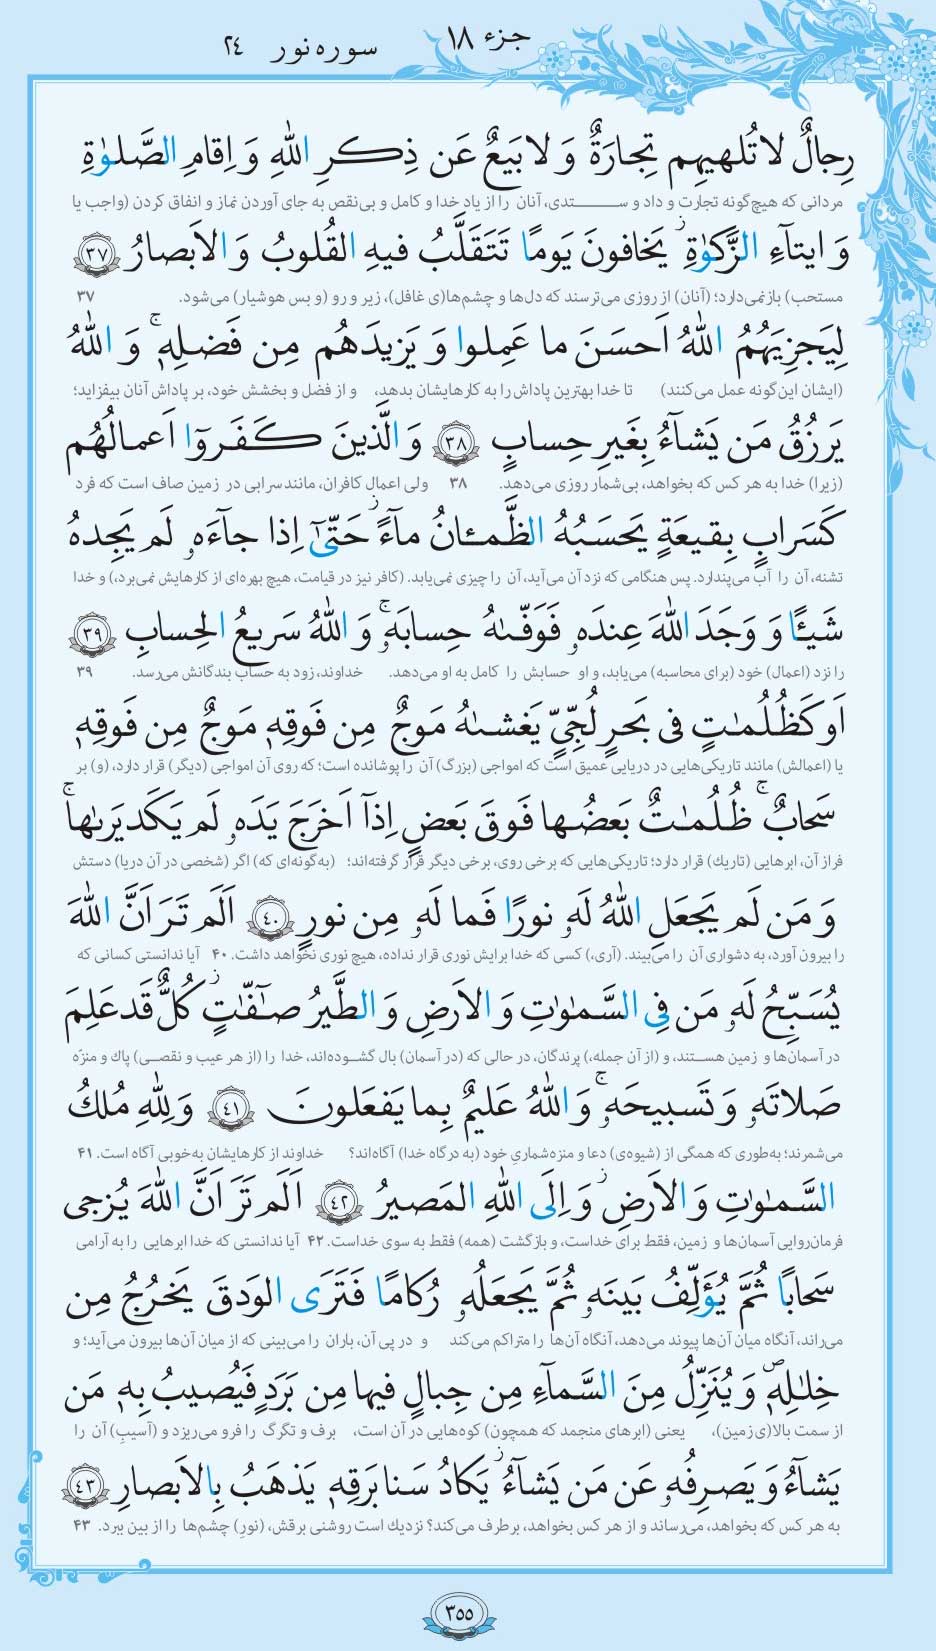 جزء ۱۸
سوره نور ۲۴
رِجالٌ لا تُلهیهِم تِجارَةٌ وَ لا بَیعٌ عَن ذِکرِ اللّٰهِ وَ اِقامِ الصَّلوٰةِ
مردانی که هیچ‌گونه تجارت و داد و ستدی، آنان را از یاد خدا و کامل و بی‌نقص به جای آوردن نماز و انفاق کردن (واجب یا
وَ ایتآءِ الزَّکوٰةِ ۙ یَخافونَ یَومًا تَتَقَلَّبُ فیهِ القُلوبُ وَ الاَبصارُ ﴿۳۷﴾
مستحب) بازنمی‌دارد؛ (آنان) از روزی می‌ترسند که دل‌ها و چشم‌ها(ی غافل)، زیر و رو (و بس هوشیار) می‌شود. ۳۷
لِیَجزِیَهُمُ اللّٰهُ اَحسَنَ ما عَمِلوا وَ یَزیدَهُم مِن فَضلِهٖ ۚ وَ اللّٰهُ
(ایشان این‌گونه عمل می‌کنند) تا خدا بهترین پاداش را به کارهایشان بدهد، و از فضل و بخشش خود، بر پاداش آنان بیفزاید؛
یَرزُقُ مَن یَشآءُ بِغَیرِ حِسابٍ ﴿۳۸﴾ وَ الَّذینَ کَفَروٓا اَعمالُهُم
(زیرا) خدا به هر کس که بخواهد، بی‌شمار روزی می‌دهد. ۳۸ ولی اعمال کافران، مانند سرابی در زمین صاف است که فرد
کَسَرابٍ بِقیعَةٍ یَحسَبُهُ الظَّمـٔانُ مآءً ؗ حَتّیٰٓ اِذا جآءَهو لَم یَجِدهُ
تشنه، آن را آب می‌پندارد. پس هنگامی که نزد آن می‌آید، آن را چیزی نمی‌یابد. (کافر نیز در قیامت، هیچ بهره‌ای از کارهایش نمی‌برد،) و خدا
شَیـًٔا وَ وَجَدَ اللّٰهَ عِندَهو فَوَفّٰهُ حِسابَهو ۚ وَ اللّٰهُ سَریعُ الحِسابِ ﴿۳۹﴾
را نزد (اعمال) خود (برای محاسبه) می‌یابد، و او حسابش را کامل به او می‌دهد. خداوند، زود به حساب بندگانش می‌رسد. ۳۹
اَو کَظُلُمٰتٍ فی بَحرٍ لُجِّیٍّ یَغشٰهُ مَوجٌ مِن فَوقِهٖ مَوجٌ مِن فَوقِهٖ
یا (اعمالش) مانند تاریکی‌هایی در دریایی عمیق است که امواجی (بزرگ) آن را پوشانده است؛ که روی آن امواجی (دیگر) قرار دارد، (و) بر
سَحابٌ ۚ ظُلُمٰتٌ بَعضُها فَوقَ بَعضٍ اِذآ اَخرَجَ یَدَهو لَم یَکَد یَرٰها ۚ
فراز آن، ابرهایی (تاریک) قرار دارد؛ تاریکی‌هایی که برخی روی، برخی دیگر قرار گرفته‌اند؛ (به‌گونه‌ای که) اگر (شخصی در آن دریا) دستش
وَ مَن لَم یَجعَلِ اللّٰهُ لَهو نورًا فَما لَهو مِن نورٍ ﴿۴۰﴾ اَلَم تَرَ اَنَّ اللّٰهَ
را بیرون آورد، به دشواری آن را می‌بیند. (آری،) کسی که خدا برایش نوری قرار نداده، هیچ نوری نخواهد داشت. ۴۰ آیا ندانستی کسانی که
یُسَبِّحُ لَهو مَن فِی السَّمٰوٰتِ وَ الاَرضِ وَ الطَّیرُ صٰٓفّٰتٍ ؗ کُلٌّ قَد عَلِمَ
در آسمان‌ها و زمین هستند، و (از آن جمله،) پرندگان، در حالی که (در آسمان) بال گشوده‌اند، خدا را (از هر عیب و نقصی) پاک و منزّه
صَلاتَهو وَ تَسبیحَهو ۚ وَ اللّٰهُ عَلیمٌ بِما یَفعَلونَ ﴿۴۱﴾ وَ لِلّٰهِ مُلکُ
می‌شمرند؛ به‌طوری که همگی از (شیوه‌ی) دعا و منزه‌شماریِ خود (به درگاه خدا) آگاه‌اند؟ خداوند از کارهایشان به‌خوبی آگاه است. ۴۱
السَّمٰوٰتِ وَ الاَرضِ ؗ وَ اِلَی اللّٰهِ المَصیرُ ﴿۴۲﴾ اَلَم تَرَ اَنَّ اللّٰهَ یُزجی
فرمان‌روایی آسمان‌ها و زمین، فقط برای خداست، و بازگشت (همه) فقط به سوی خداست. ۴۲ آیا ندانستی که خدا ابرهایی را به آرامی
سَحابًا ثُمَّ یُؤَلِّفُ بَینَهو ثُمَّ یَجعَلُهو رُکامًا فَتَرَی الوَدقَ یَخرُجُ مِن
می‌راند، آنگاه میان آن‌ها پیوند می‌دهد، آنگاه آن‌ها را متراکم می‌کند و در پی آن، باران را می‌بینی که از میان آن‌ها بیرون می‌آید؛ و
خِلٰلِهٖ ۖ وَ یُنَزِّلُ مِنَ السَّمآءِ مِن جِبالٍ فیها مِن بَرَدٍ فَیُصیبُ بِهٖ مَن
از سمت بالا(ی زمین)، یعنی (ابرهای منجمد که همچون) کوه‌هایی در آن است، برف و تگرگ را فرو می‌ریزد و (آسیبِ) آن را
یَشآءُ وَ یَصرِفُهو عَن مَن یَشآءُ ؗ یَکادُ سَنا بَرقِهٖ یَذهَبُ بِالاَبصارِ ﴿۴۳﴾
به هر کس که بخواهد، می‌رساند و از هر کس بخواهد، برطرف می‌کند؟ نزدیک است روشنی برقش، (نورِ) چشم‌ها را از بین ببرد. ۴۳
۳۵۵